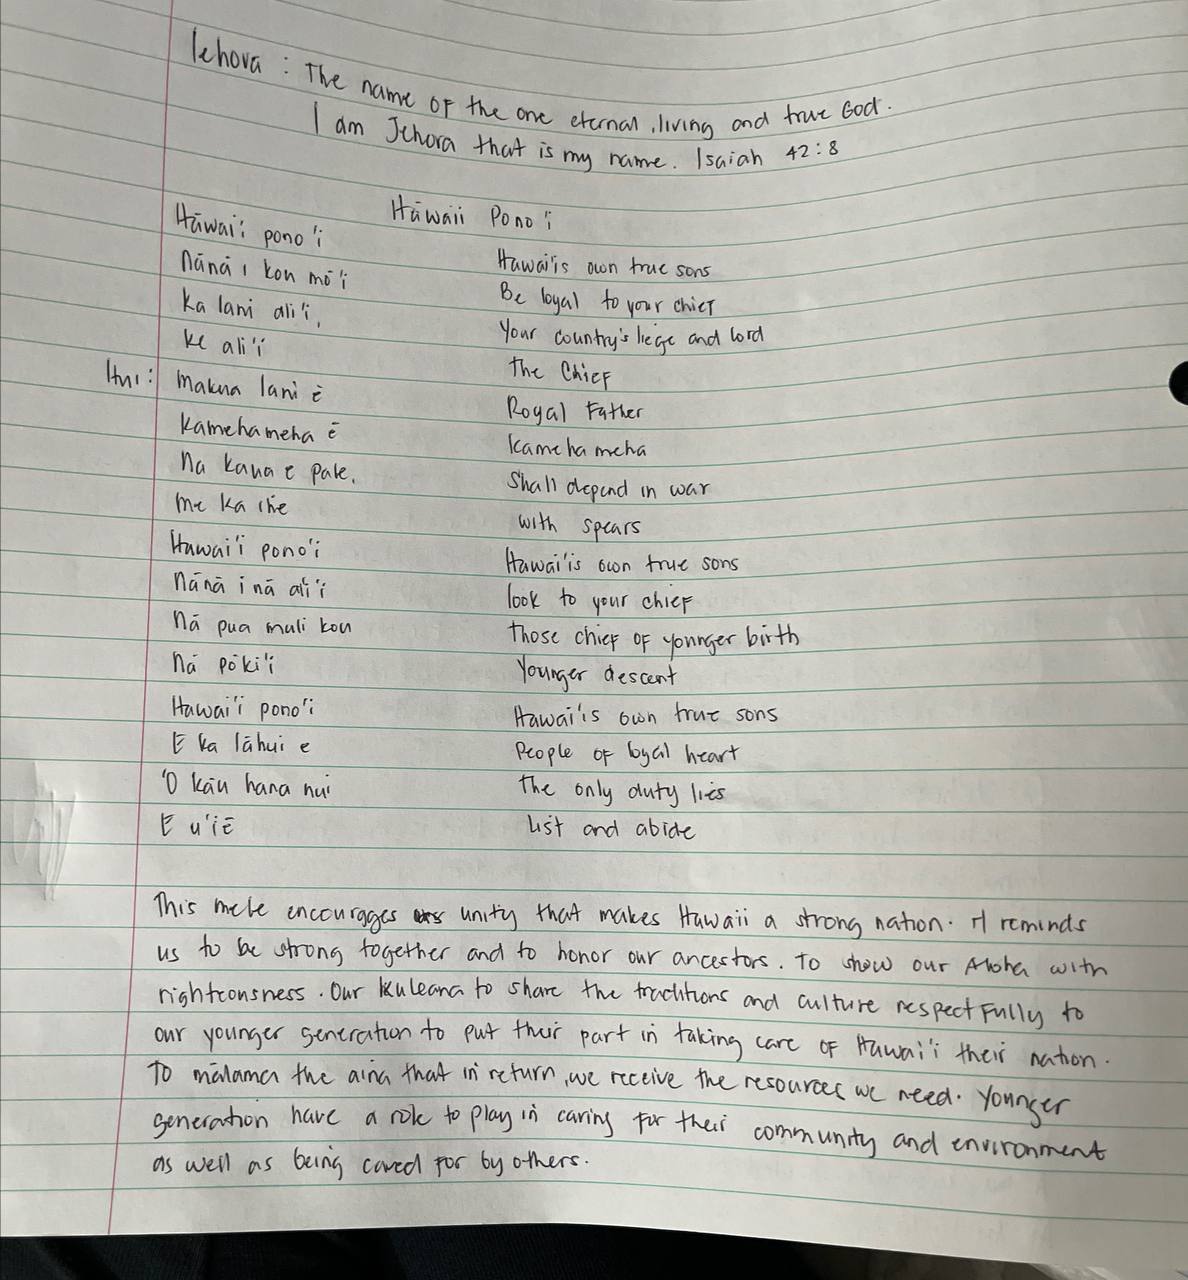 Iehova : The name of the one eternal, living and true God.
I am Jehova that is my name. Isaiah 42:8
Hāwaii Pono'i
Hāwai'i pono'i
Hawai'is own true sons
nānā i kou mō'i
Be loyal to your chief
ka lani ali'i,
Your country's liege and lord
ke ali'i
the Chief
Hui: makua lani ē
Royal Father
kamehameha ē
kamehameha
na kaua e pale.
Shall depend in war
me ka ihe
with spears
Hawai'i pono'i
Hawai'is own true sons
nānā i nā ali'i
look to your chief
nā pua muli kou
those chief of younger birth
nā pōki'i
Younger descent
Hawai'i pono'i
Hawai'is own true sons
E ka lāhui e
People of loyal heart
'O kāu hana nui
the only duty lies
E u'iē
List and abide
This mele encourages unity that makes Hawaii a strong nation. It reminds
us to be strong together and to honor our ancestors. To show our Aloha with
righteousness. Our kuleana to share the traditions and culture respectfully to
our younger generation to put their part in taking care of Hawai'i their nation.
To mālama the aina that in return, we receive the resources we need. Younger
generation have a role to play in caring for their community and environment
as well as being cared for by others.